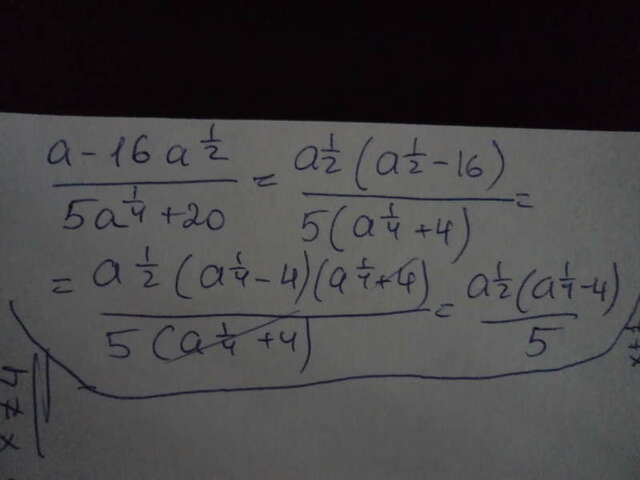 (a - 16a^(1/2)) / (5a^(1/4) + 20) = (a^(1/2)(a^(1/2) - 16)) / (5(a^(1/4) + 4)) =
= (a^(1/2)(a^(1/4) - 4)(a^(1/4) + 4)) / (5(a^(1/4) + 4)) = (a^(1/2)(a^(1/4) - 4)) / 5